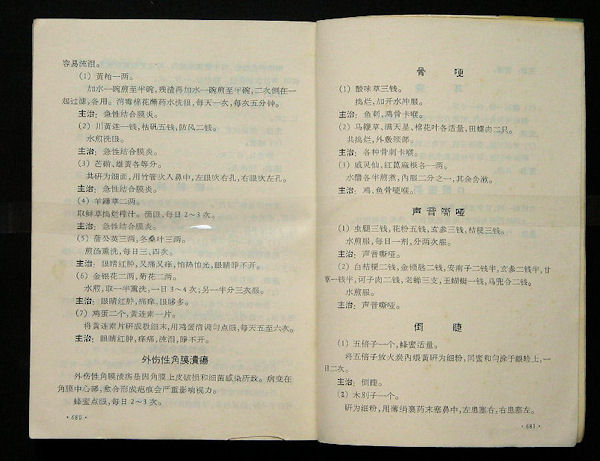 容易流泪。
(1) 黄柏一两。
加水一碗煎至半碗,残渣再加水一碗煎至半碗,二次倒在一
起过滤,备用。消毒棉花蘸药水洗眼,每天一次,每次五分钟。
主治: 急性结合膜炎。
(2) 川黄连一钱,枯矾五钱,防风二钱。
水煎洗眼。
主治: 急性结合膜炎。
(3) 芒硝、雄黄各等分。
共研为细面,用竹管吹入鼻中,左眼吹右孔,右眼吹左孔。
主治: 急性结合膜炎。
(4) 羊蹄草二两。
取鲜草捣烂榨汁。滴眼,每日2～3次。
主治: 急性结合膜炎。
(5) 蒲公英三两,冬桑叶三两。
煎汤熏洗,每日三、四次。
主治: 眼睛红肿,又痛又痒,怕热怕光,眼睛睁不开。
(6) 金银花二两,菊花二两。
水煎,取一半熏洗,一日3～4次;另一半分三次服。
主治: 眼睛红肿,痛痒,眼眵多。
(7) 鸡蛋二个,黄连素一片。
将黄连素片研成极细末,用鸡蛋清调匀点眼,每天五至六次。
主治: 眼睛红肿,痒痛,流泪,睁不开。
外伤性角膜溃疡
外伤性角膜溃疡是因角膜上皮破损和细菌感染所致。病变在
角膜中心部,愈合形成疤痕会严重影响视力。
蜂蜜点眼,每日2～3次。
· 680 ·
骨 哽
(1) 酸味草三钱。
捣烂,加开水冲服。
主治: 鱼刺、鸡骨卡喉。
(2) 马鞭草、满天星、棉花叶各适量,田螺肉二只。
共捣烂,外敷颈部。
主治: 各种骨刺卡喉。
(3) 威灵仙,红苋麻根各一两。
水醋各半煎煮,内服二分之一,其余含漱。
主治: 鸡、鱼骨哽喉。
声音嘶哑
(1) 虫腿三钱,花粉五钱,玄参三钱,桔梗三钱。
水煎服,每日一剂,分两次服。
主治: 声音嘶哑。
(2) 白桔梗二钱,金锁匙二钱,安南子二钱半,玄参二钱半,甘
草一钱半,诃子肉二钱,老蝉三支,玉蝴蝶一钱,马兜合二钱。
水煎服。
主治: 声音嘶哑。
倒 睫
(1) 五倍子一个,蜂蜜适量。
将五倍子放火炭内煨黄研为细粉,同蜜和匀涂于眼睑上,一
日二次。
主治: 倒睫。
(2) 木别子一个。
研为细粉,用薄绢裹药末塞鼻中,左患塞右,右患塞左。
· 681 ·